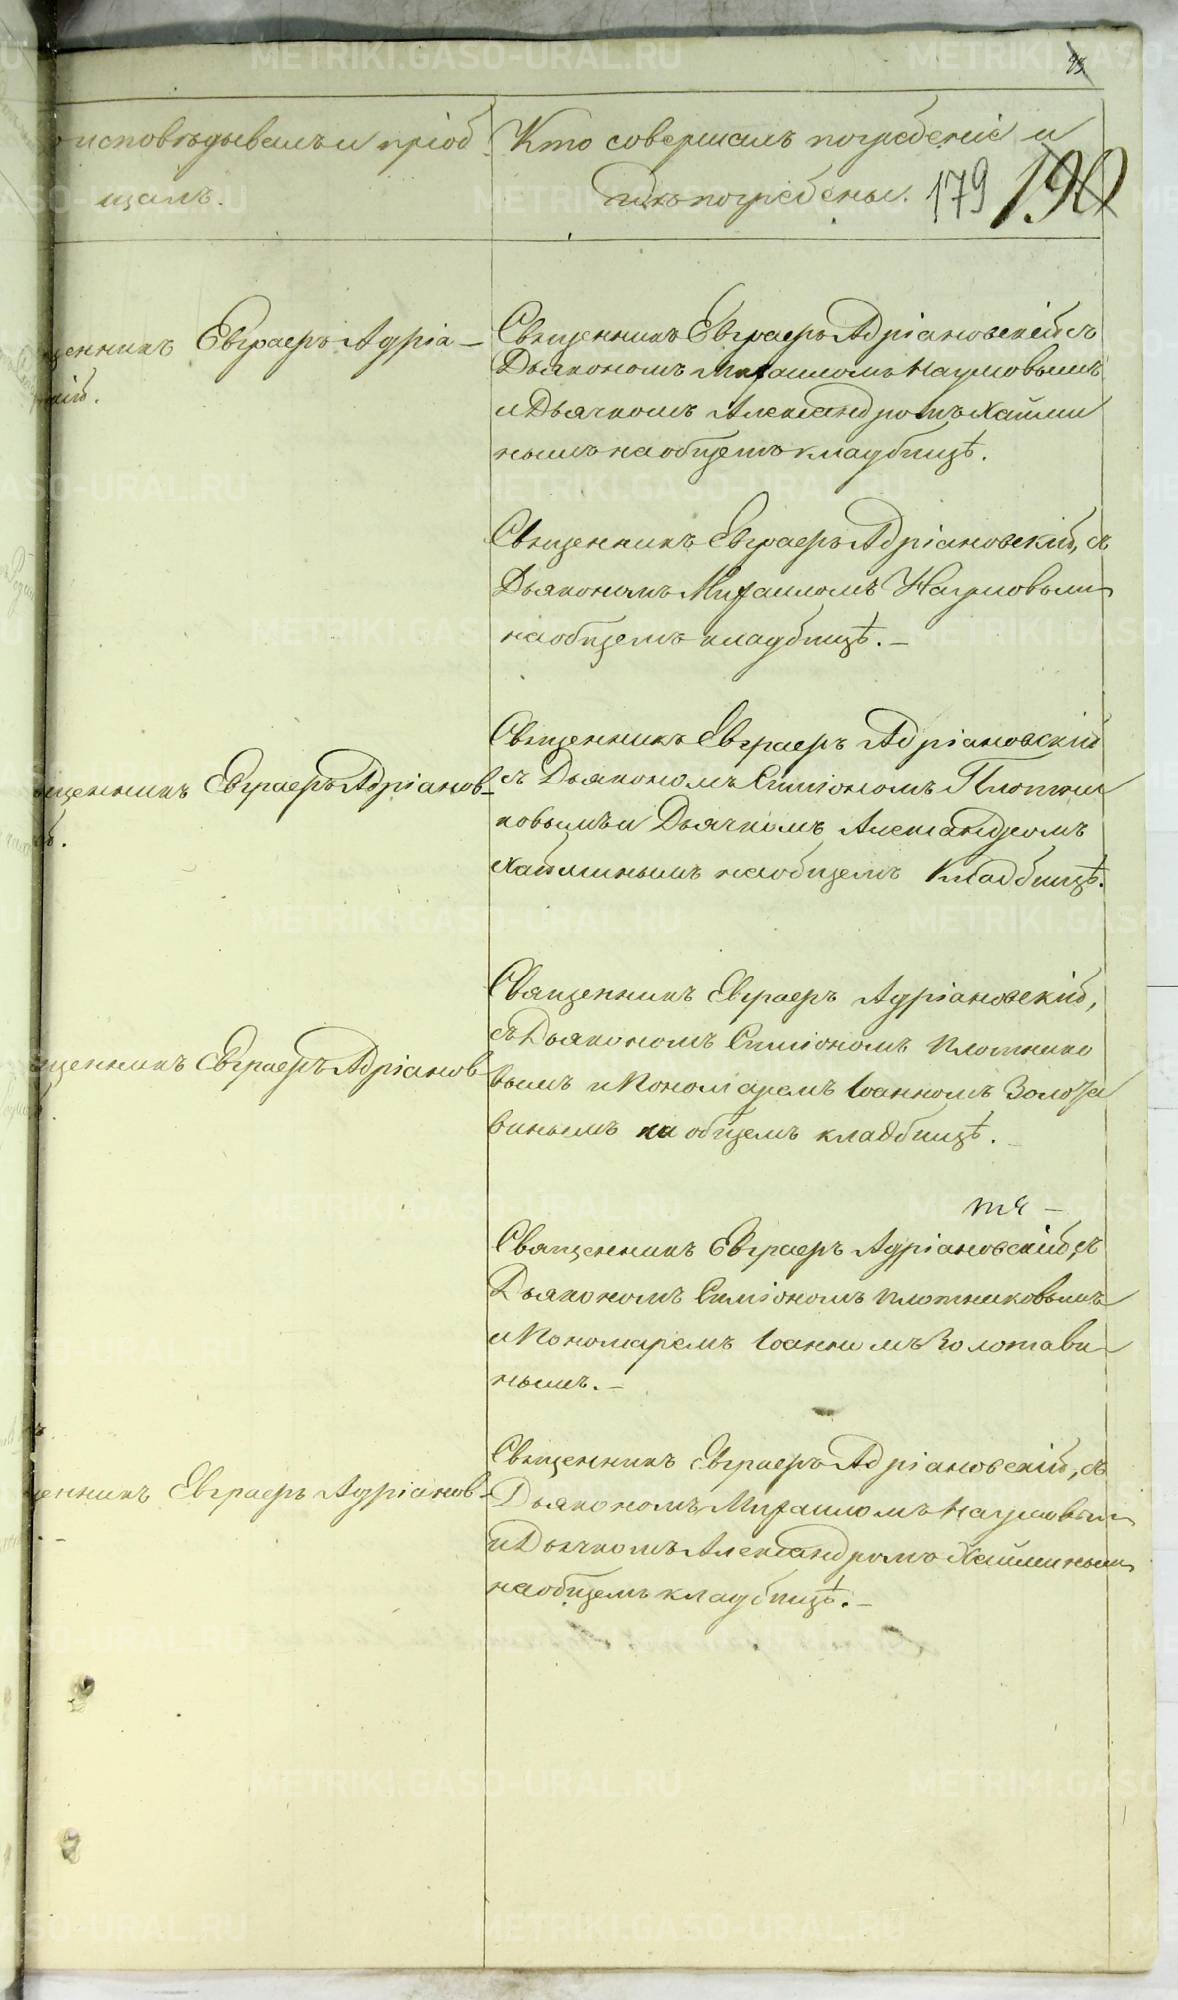 93
исповѣдывалъ и пріоб
щалъ.
Кто совершалъ погребеніе и
гдѣ погребены.
179 190
щенникъ Евграфъ Адріа-
кій.
Священникъ Евграфъ Адріановскій съ
Дьякономъ Михаиломъ Наумовымъ
и Дьячкомъ Александромъ Хайми
нымъ на общемъ кладбищѣ.
Священникъ Евграфъ Адріановскій, съ
Дьякономъ Михаиломъ Наумовым
на общемъ кладбищѣ. –
щенникъ Евграфъ Адріанов-
й.
Священникъ Евграфъ Адріановскій
съ Дьякономъ Симіономъ Плотни
ковымъ и Дьячкомъ Александромъ
Хайминымъ на общемъ Кладбищѣ.
щенникъ Евграфъ Адріанов
Священникъ Евграфъ Адріановскій,
съ Дьякономъ Симіономъ Плотнико
вымъ и Пономаремъ Іоанномъ Золота
винымъ на общемъ кладбищѣ. –
тя –
Священникъ Евграфъ Адріановскій съ
Дьякономъ Симіономъ Плотниковымъ
и Пономаремъ Іоанномъ Золотави
нымъ. –
щенникъ Евграфъ Адріанов-
Священникъ Евграфъ Адріановскій, съ
Дьякономъ Михаиломъ Наумовым
и Дьячкомъ Александромъ Хайминым
на общемъ кладбищѣ. –
METRIKI.GASO-URAL.RU